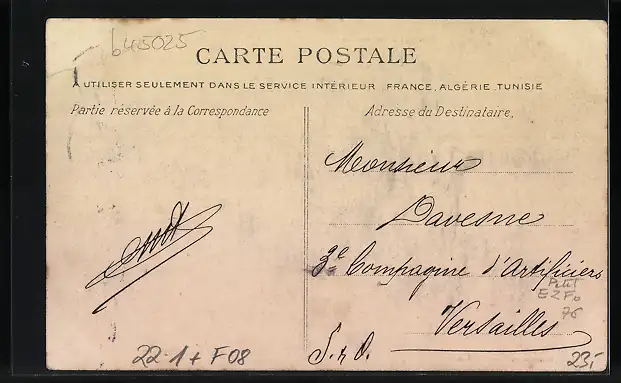 b45025
CARTE POSTALE
A UTILISER SEULEMENT DANS LE SERVICE INTÉRIEUR FRANCE, ALGÉRIE, TUNISIE
Partie réservée à la Correspondance
Adresse du Destinataire.
Monsieur
Davesne
3e Compagnie d'Artificiers
Petit
Versailles
S. et O.
22·1+ F08
23,-